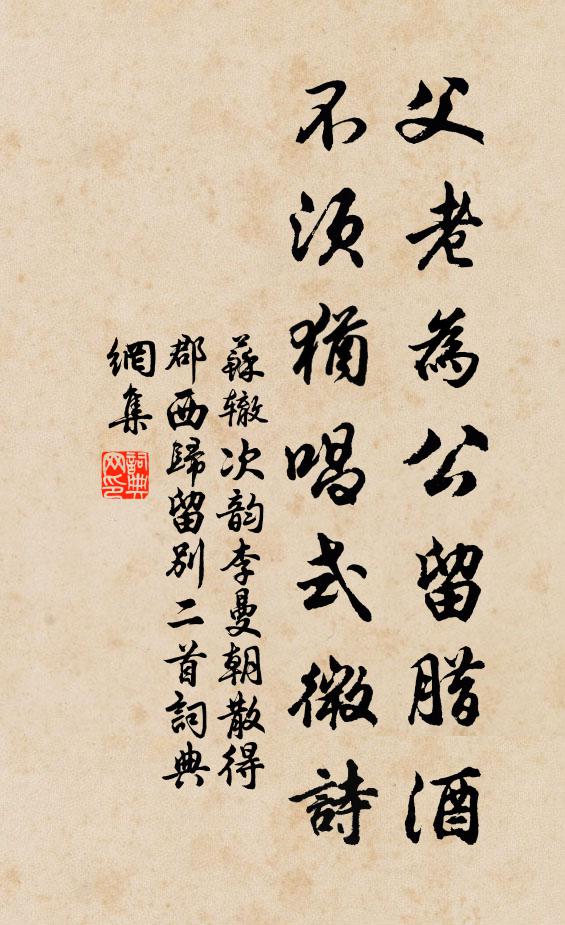 父老為公留腊酒
不须猶唱式微詩
蘇辙次韵李曼朝散得
郡西歸留别二首詞典
網集
詞典
网印